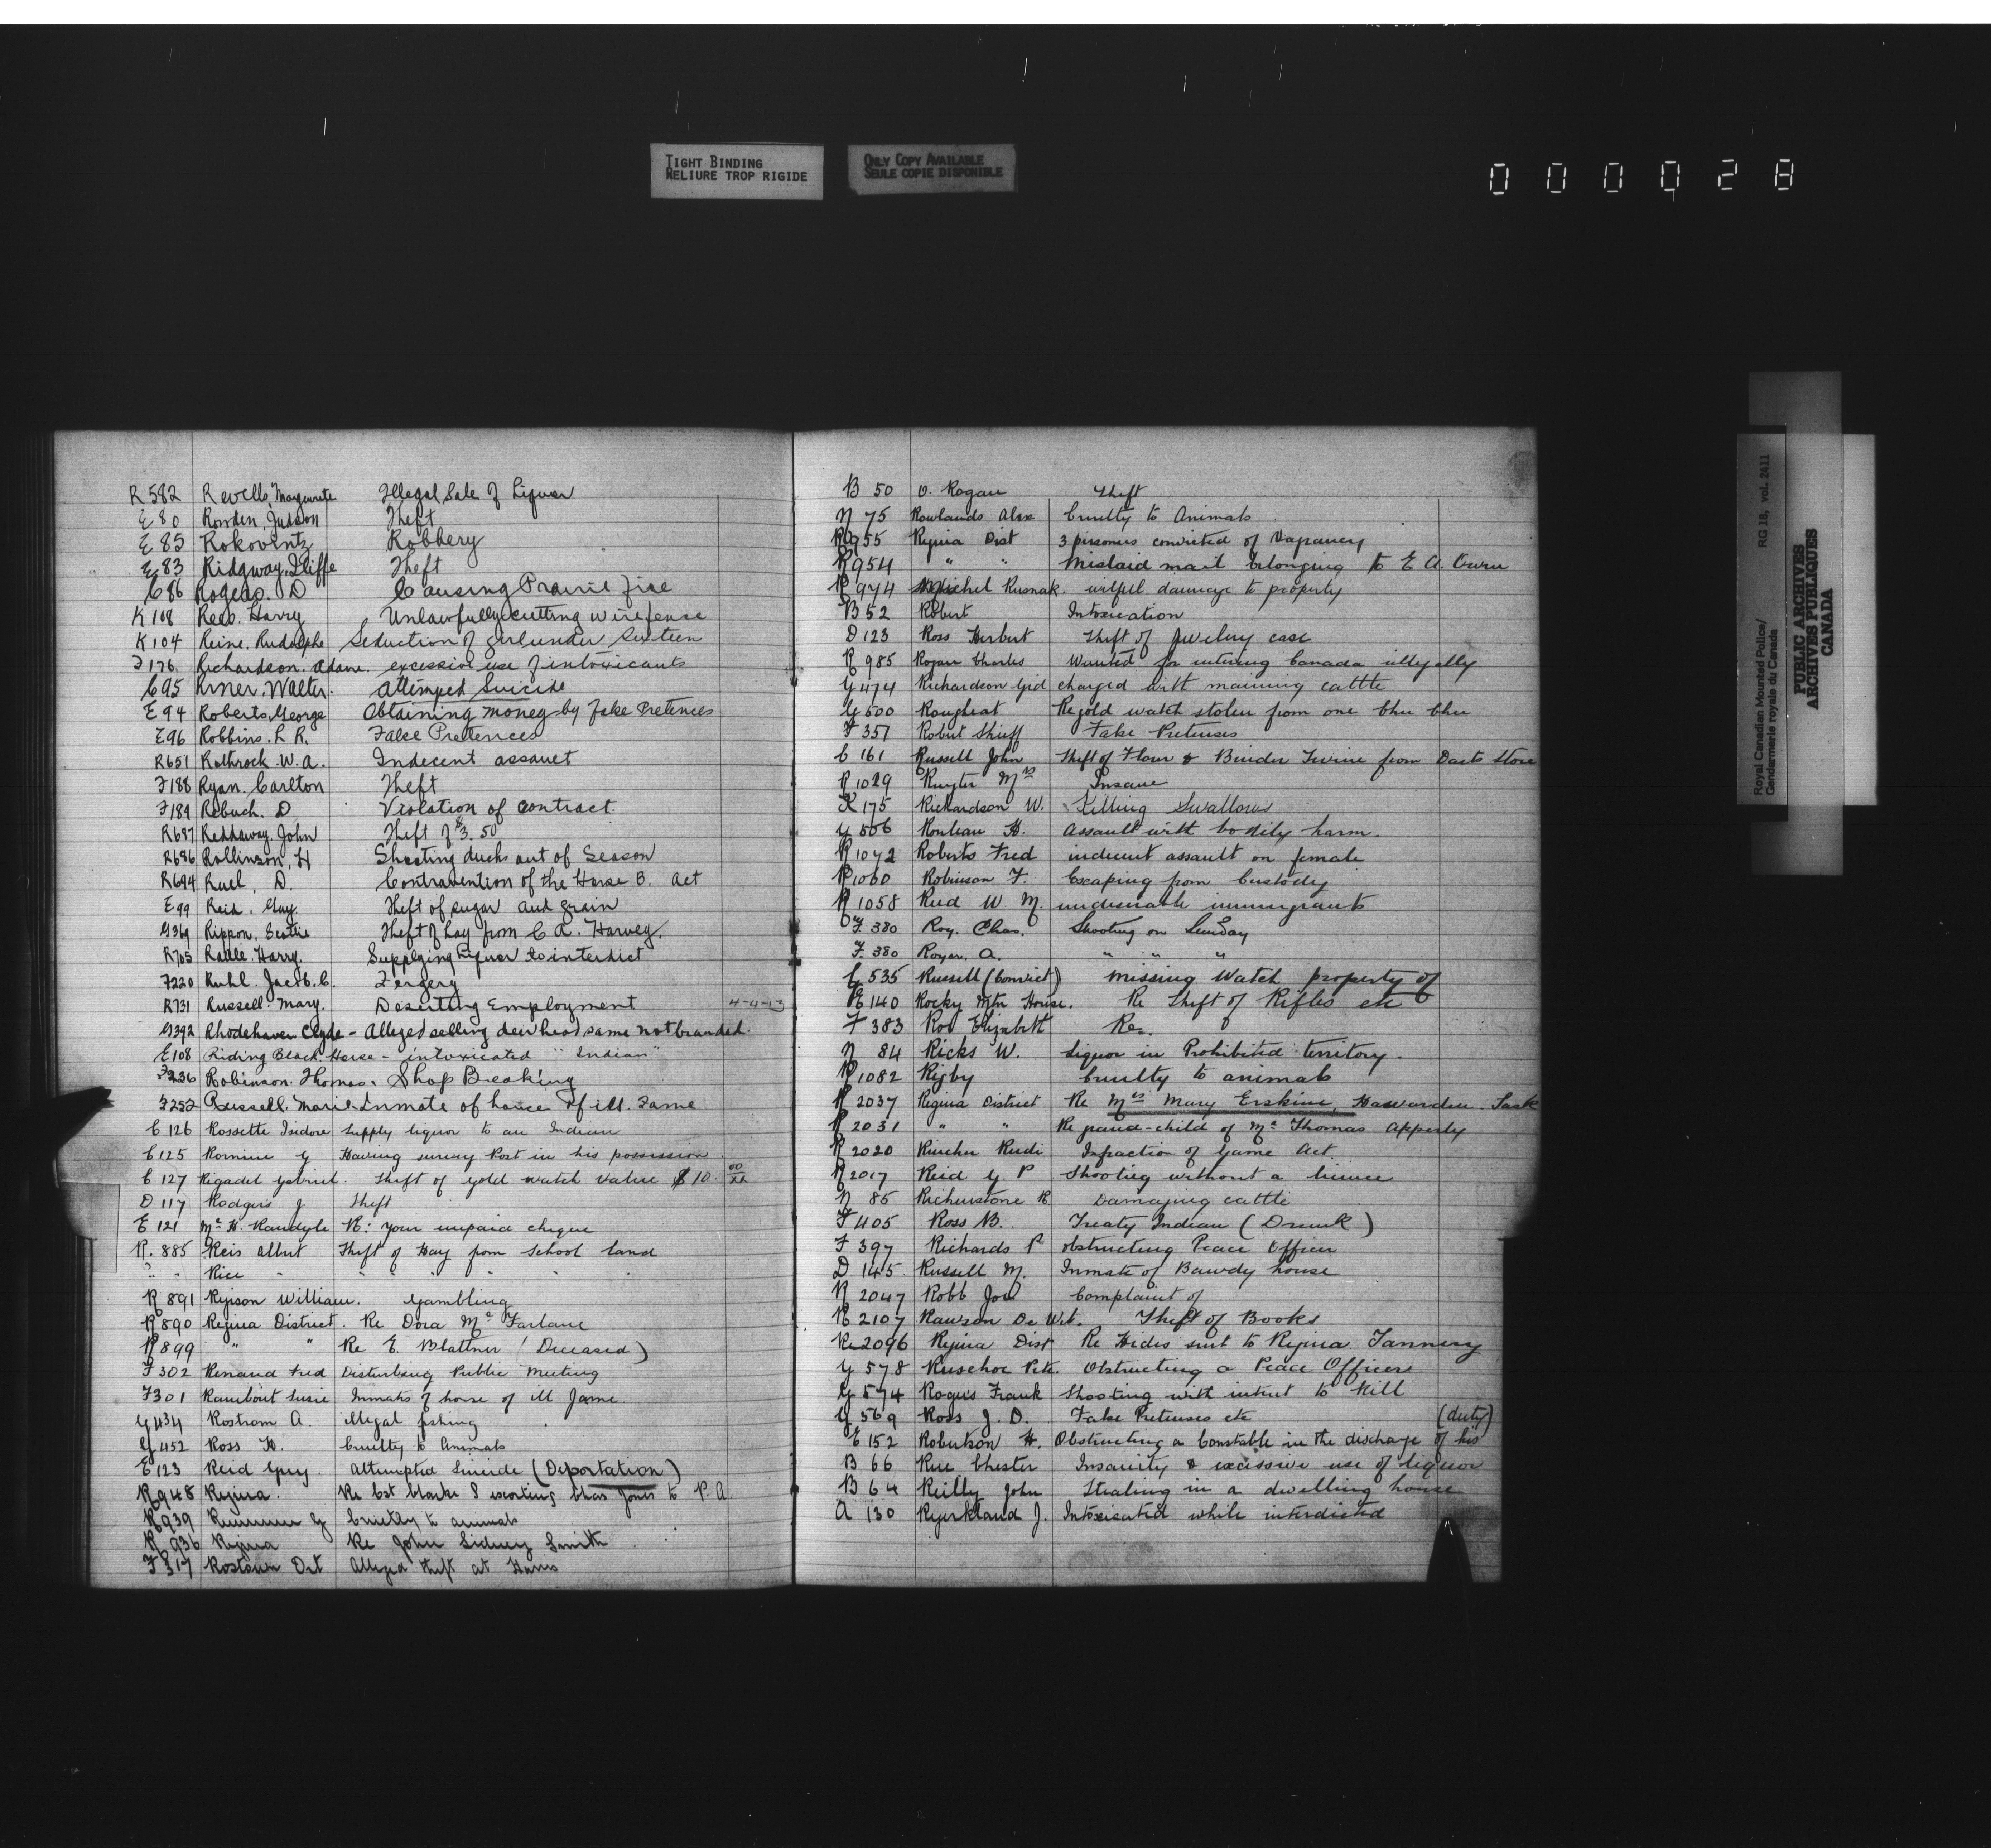 TIGHT BINDING
RELIURE TROP RIGIDE
ONLY COPY AVAILABLE
SEULE COPIE DISPONIBLE
000028
Royal Canadian Mounted Police/
Gendarmerie royale du Canada
RG 18, vol. 2411
PUBLIC ARCHIVES
ARCHIVES PUBLIQUES
CANADA
R 582 Revells, Marguerite Illegal Sale of Liquor
E 80 Rowden, Judson Theft
E 85 Rokoventz Robbery
E 83 Ridgway, Iliffe Theft
C 86 Rogers. D Causing Prairie Fire
K 108 Rees. Harry Unlawfully cutting wire fence
K 104 Reine. Rudolphe Seduction of girl under Sixteen
F 176 Richardson. Adam. excessive use of intoxicants
C 95 Walter. Attemped Suicide
E 94 Roberts, George Obtaining money by false Pretences
E 96 Robbins. L R. False Pretences
R 651 Rothrock. W. A. Indecent assault
F 188 Ryan. Carlton Theft
F 189 Rebuch. D Violation of contract.
R 687 Reddaway. John Theft of $3.50
R 686 Rollinson, H Shooting ducks out of Season
R 694 Ruel, D. Contravention of the Horse B. Act
E 99 Reid, Guy. Theft of sugar and grain
G 369 Rippon, Theft of hay from C A. Harvey.
R 705 Rattle. Harry. Supplying Liquor to interdict
F 220 Ruhl. Jacob. C. Forgery
R 731 Russell. Mary. Deserting Employment 4-4-13
G 392 Rhodehaven Clyde - Alleged selling deer head same not branded.
E 108 Riding Black Horse - intoxicated "Indian"
F 236 Robinson. Thomas. Shop Breaking
F 252 Russell. Marie. Inmate of house of ill. Fame
C 126 Rossette Isidore Supply liquor to an Indian
C 125 Romine G Having survey Post in his possession
C 127 Rigadet Gabriel. Theft of gold watch value $10. 00/xx
D 117 Rodgers J Theft
E 121 Mc H. Randyle R: your unpaid cheque
R. 885 Reis Albert Theft of Hay from School land
" " Rice " " " " " "
R 891 Ryison William. Gambling
R 890 Regina District. Re Dora Mc Farlane
R 899 " " Re E. Blattner (Deceased)
F 302 Renaud Fred Disturbing Public Meeting
F 301 Rambout Susie Inmate of house of ill fame
G 434 Rostrom A. illegal fishing
G 452 Ross H. Cruelty to Animals
E 123 Reid Attempted Suicide (Deportation)
R 948 Regina. Re Cst Clarke I escorting Chas Jones to P. A
R 939 G Cruelty to animals
R 936 Regina Re John Sidney Smith
F 317 Rostown Det Alleged theft at Hanis
B 50 O. Rogan Theft
N 75 Rowlands Alex Cruelty to Animals
R 955 Regina Dist 3 prisoners convicted of Vagrancy
R 954 " " Mislaid mail belonging to E A. Owen
R 974 Michel Rusnak. wilful damage to property
B 52 Robert Intoxication
D 123 Ross Herbert Theft of Jewelery case
R 985 Rogan Charles Wanted for entering Canada illegally
G 474 Richardson Gid charged with maiming cattle
G 500 Rougheat Re gold watch stolen from one Chu Chu
F 357 Robert Shieff False Pretenses
C 161 Russell John Theft of Flour & Binder Twine from Store
R 1029 Ruyter Mrs Insane
K 175 Richardson W. Killing Swallows
G 506 Rouleau H. Assault with bodily harm.
R 1072 Roberts Fred indecent assault on female
R 1060 Robinson F. Escaping from Custody
R 1058 Reid W. M. undesirable immigrants
F 380 Roy. Chas. Shooting on Sunday
F 380 Royer. A. " " "
G 535 Russell (Convict) Missing Watch property of
E 140 Rocky Mtn House. Re Theft of Rifles etc
F 383 Roe Elizabeth Re.
N 84 Ricks W. Liquor in Prohibited territory.
R 1082 Rigby Cruelty to animals
R 2037 Regina District Re Mrs Mary Erskine, Hawarden. Sask
R 2031 " " Re grand-child of Mr Thomas Apperly
R 2020 Rudi Infraction of Game Act.
R 2017 Reid G. P Shooting without a licence
N 85 Richenstone R Damaging cattle
F 405 Ross B. Treaty Indian (Drunk)
F 397 Richards P obstructing Peace Officer
D 145. Russell M. Inmate of Bawdy house
R 2047 Robb Joe Complaint of
R 2107 Rawson De Wit. Theft of Books
R 2096 Regina Dist Re Hides sent to Regina Tannery
G 578 Ruschoe Pete. Obstructing a Peace Officer
G 574 Rogers Frank Shooting with intent to Kill
G 569 Ross J. D. False Pretenses etc
E 152 Robertson H. Obstructing a Constable in the discharge of his (duty)
B 66 Rue Chester Insanity & excessive use of liquor
B 64 Reilly John Stealing in a dwelling house
A 130 Ryerkland J. Intoxicated while interdicted